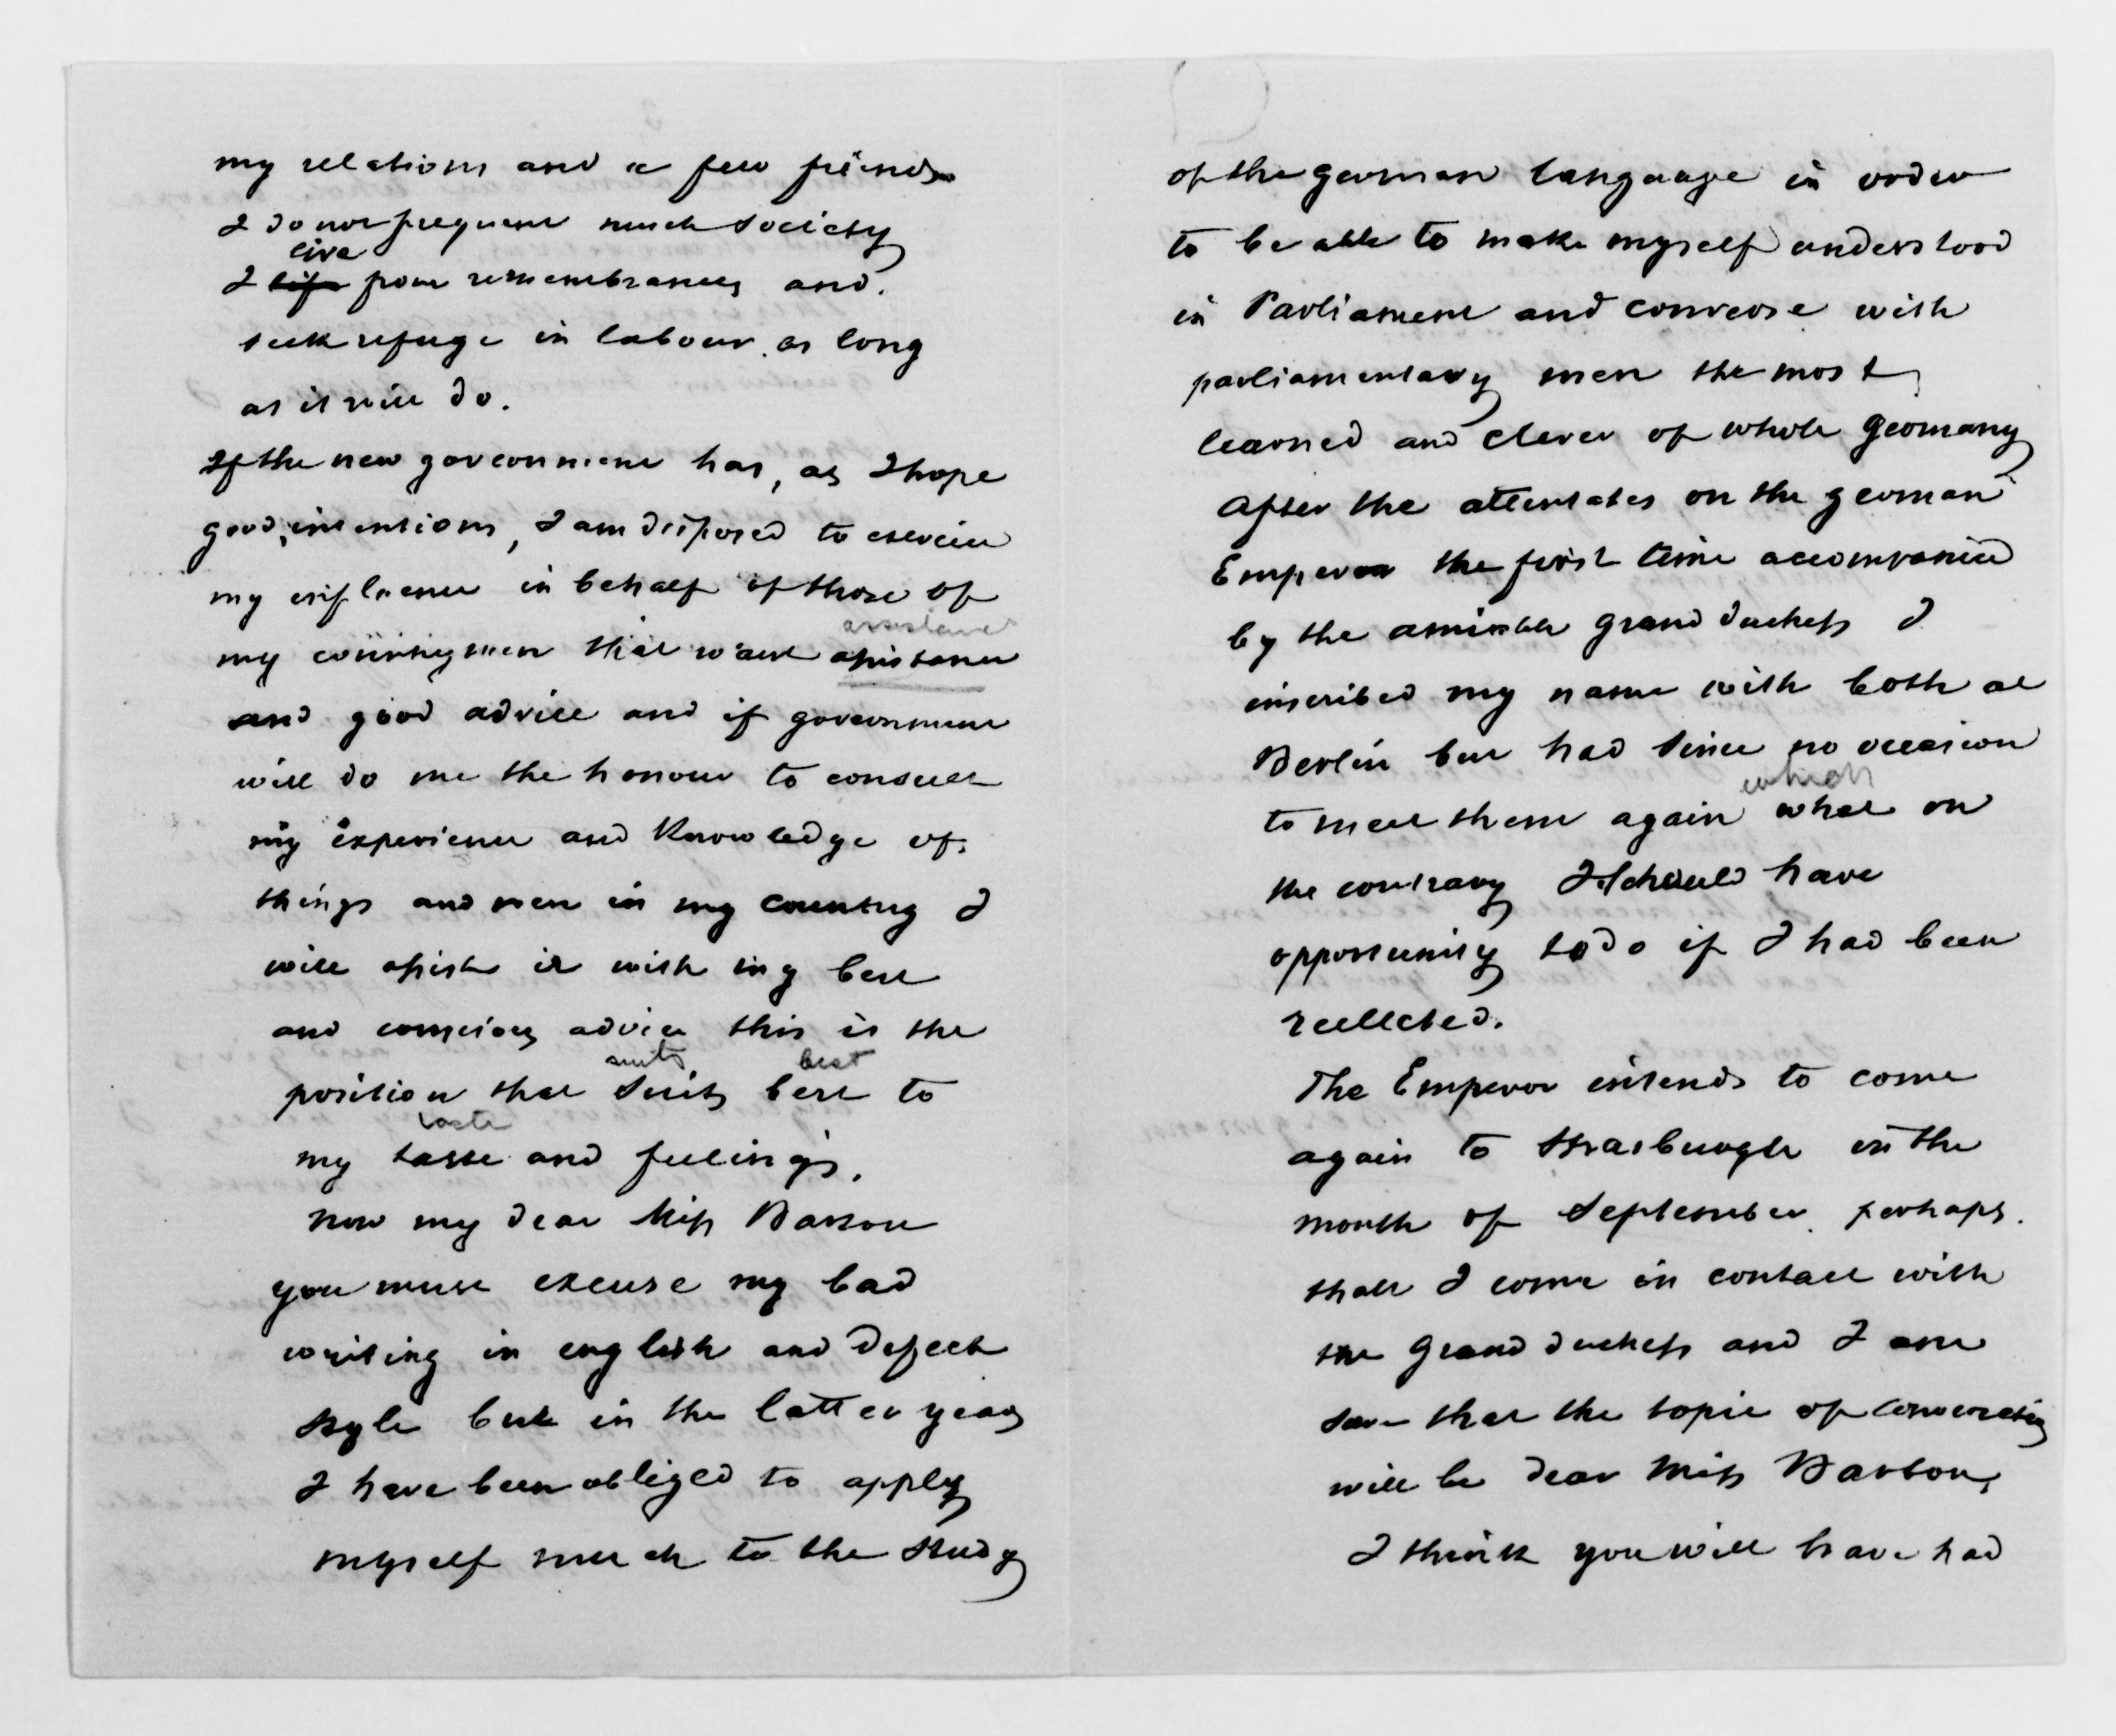 my relations and a few friends
I do not frequent much society
live
I life from remembrances and
seek refuge in labour as long
as it will do.
If the new government has, as I hope
good intentions, I am disposed to exercise
my influence in behalf of those of
assistance
my countrymen that want assistance
and good advice and if government
will do me the honour to consult
my experience and Knowledge of
things and men in my country I
will assist it with my best
and conscious advice this is the
suits best
position that suits best to
taste
my taste and feelings.
now my dear Miss Barton
you must excuse my bad
writing in english and defect
style but in the latter years
I have been obliged to apply
myself much to the study
of the german language in order
to be able to make myself understood
in Parliament and converse with
parliamentary men the most
learned and clever of whole Germany
After the attentates on the german
Emperor the first time accompanied
by the amiable grand duchess I
inscribed my name with both at
Berlin but had since no occasion
which
to meet them again what on
the contrary I should have
opportunity to do if I had been
reelected.
The Emperor intends to come
again to Strasburgh in the
month of September perhaps.
shall I come in contact with
the Grand duchess and I am
sure that the topic of conversation
will be dear Miss Barton,
I think you will have had